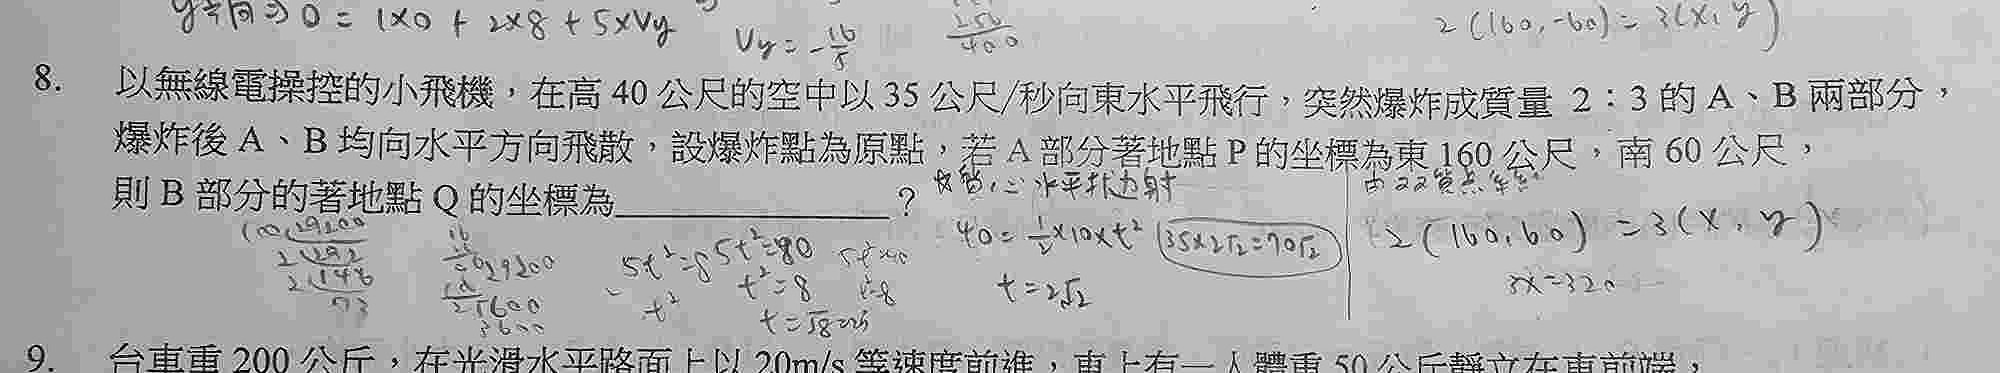 y方向⇒ 0 = 1×0 + 2×8 + 5×Vy
Vy = -16/5
256
400
2(160, -60) = 3(x, y)
8. 以無線電操控的小飛機，在高 40 公尺的空中以 35 公尺/秒向東水平飛行，突然爆炸成質量 2：3 的 A、B 兩部分，
爆炸後 A、B 均向水平方向飛散，設爆炸點為原點，若 A 部分著地點 P 的坐標為東 160 公尺，南 60 公尺，
則 B 部分的著地點 Q 的坐標為＿＿＿＿＿＿？
水平拋射
40 = 1/2×10×t²
35×2√2=70√2
t = 2√2
2(160, 60) = 3(x, y)
3x=320
100 29200
2 292
2 146
73
29200
25600
3600
5t²=8
t²
5t²=80
t²=8
t=√8
9. 台車重 200 公斤，在光滑水平路面上以 20m/s 等速度前進，車上有一人體重 50 公斤靜立在車前端，